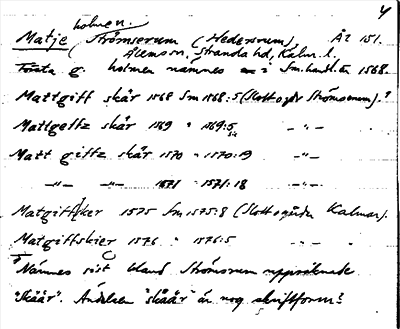 4
holmen.
Matje Strömserum (Hedersrum) ÄZ 151.
Ålems sn. Stranda hd, Kalm. l.
Första g. holmen nämnes i Sm. handl. 1568.
Mattgiff skär 1568 Sm 1568:5 (Slott o går Strömserum).?
Mattgeffz skär 1569 " 1569:5 -"-
Matt giffz skär 1570 " 1570:19 -"-
-"- -"- 1571 " 1571:18 -"-
Matgiffsker 1575 Sm 1575:8 (Slott o gårdar Kalmar).
Matgiffskier 1576 " 1576:5 " "
Nämnes sist bland Strömsrum uppräknade
"skäär". Ändelsen "skäär" är nog skriftform?